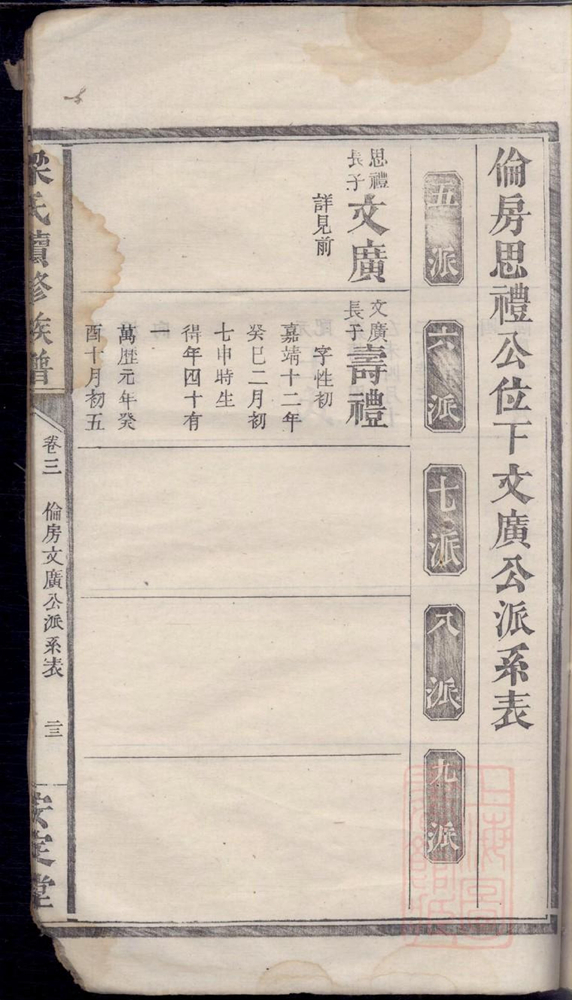 倫房思禮公位下文廣公派系表
五派
六派
七派
八派
九派
思禮
長子
文廣
詳見前
文廣
長子
壽禮
字性初
嘉靖十二年
癸巳二月初
七申時生
得年四十有
一
萬歷元年癸
酉十月初五
梁氏續修族譜
卷三
倫房文廣公派系表
二三
安定堂